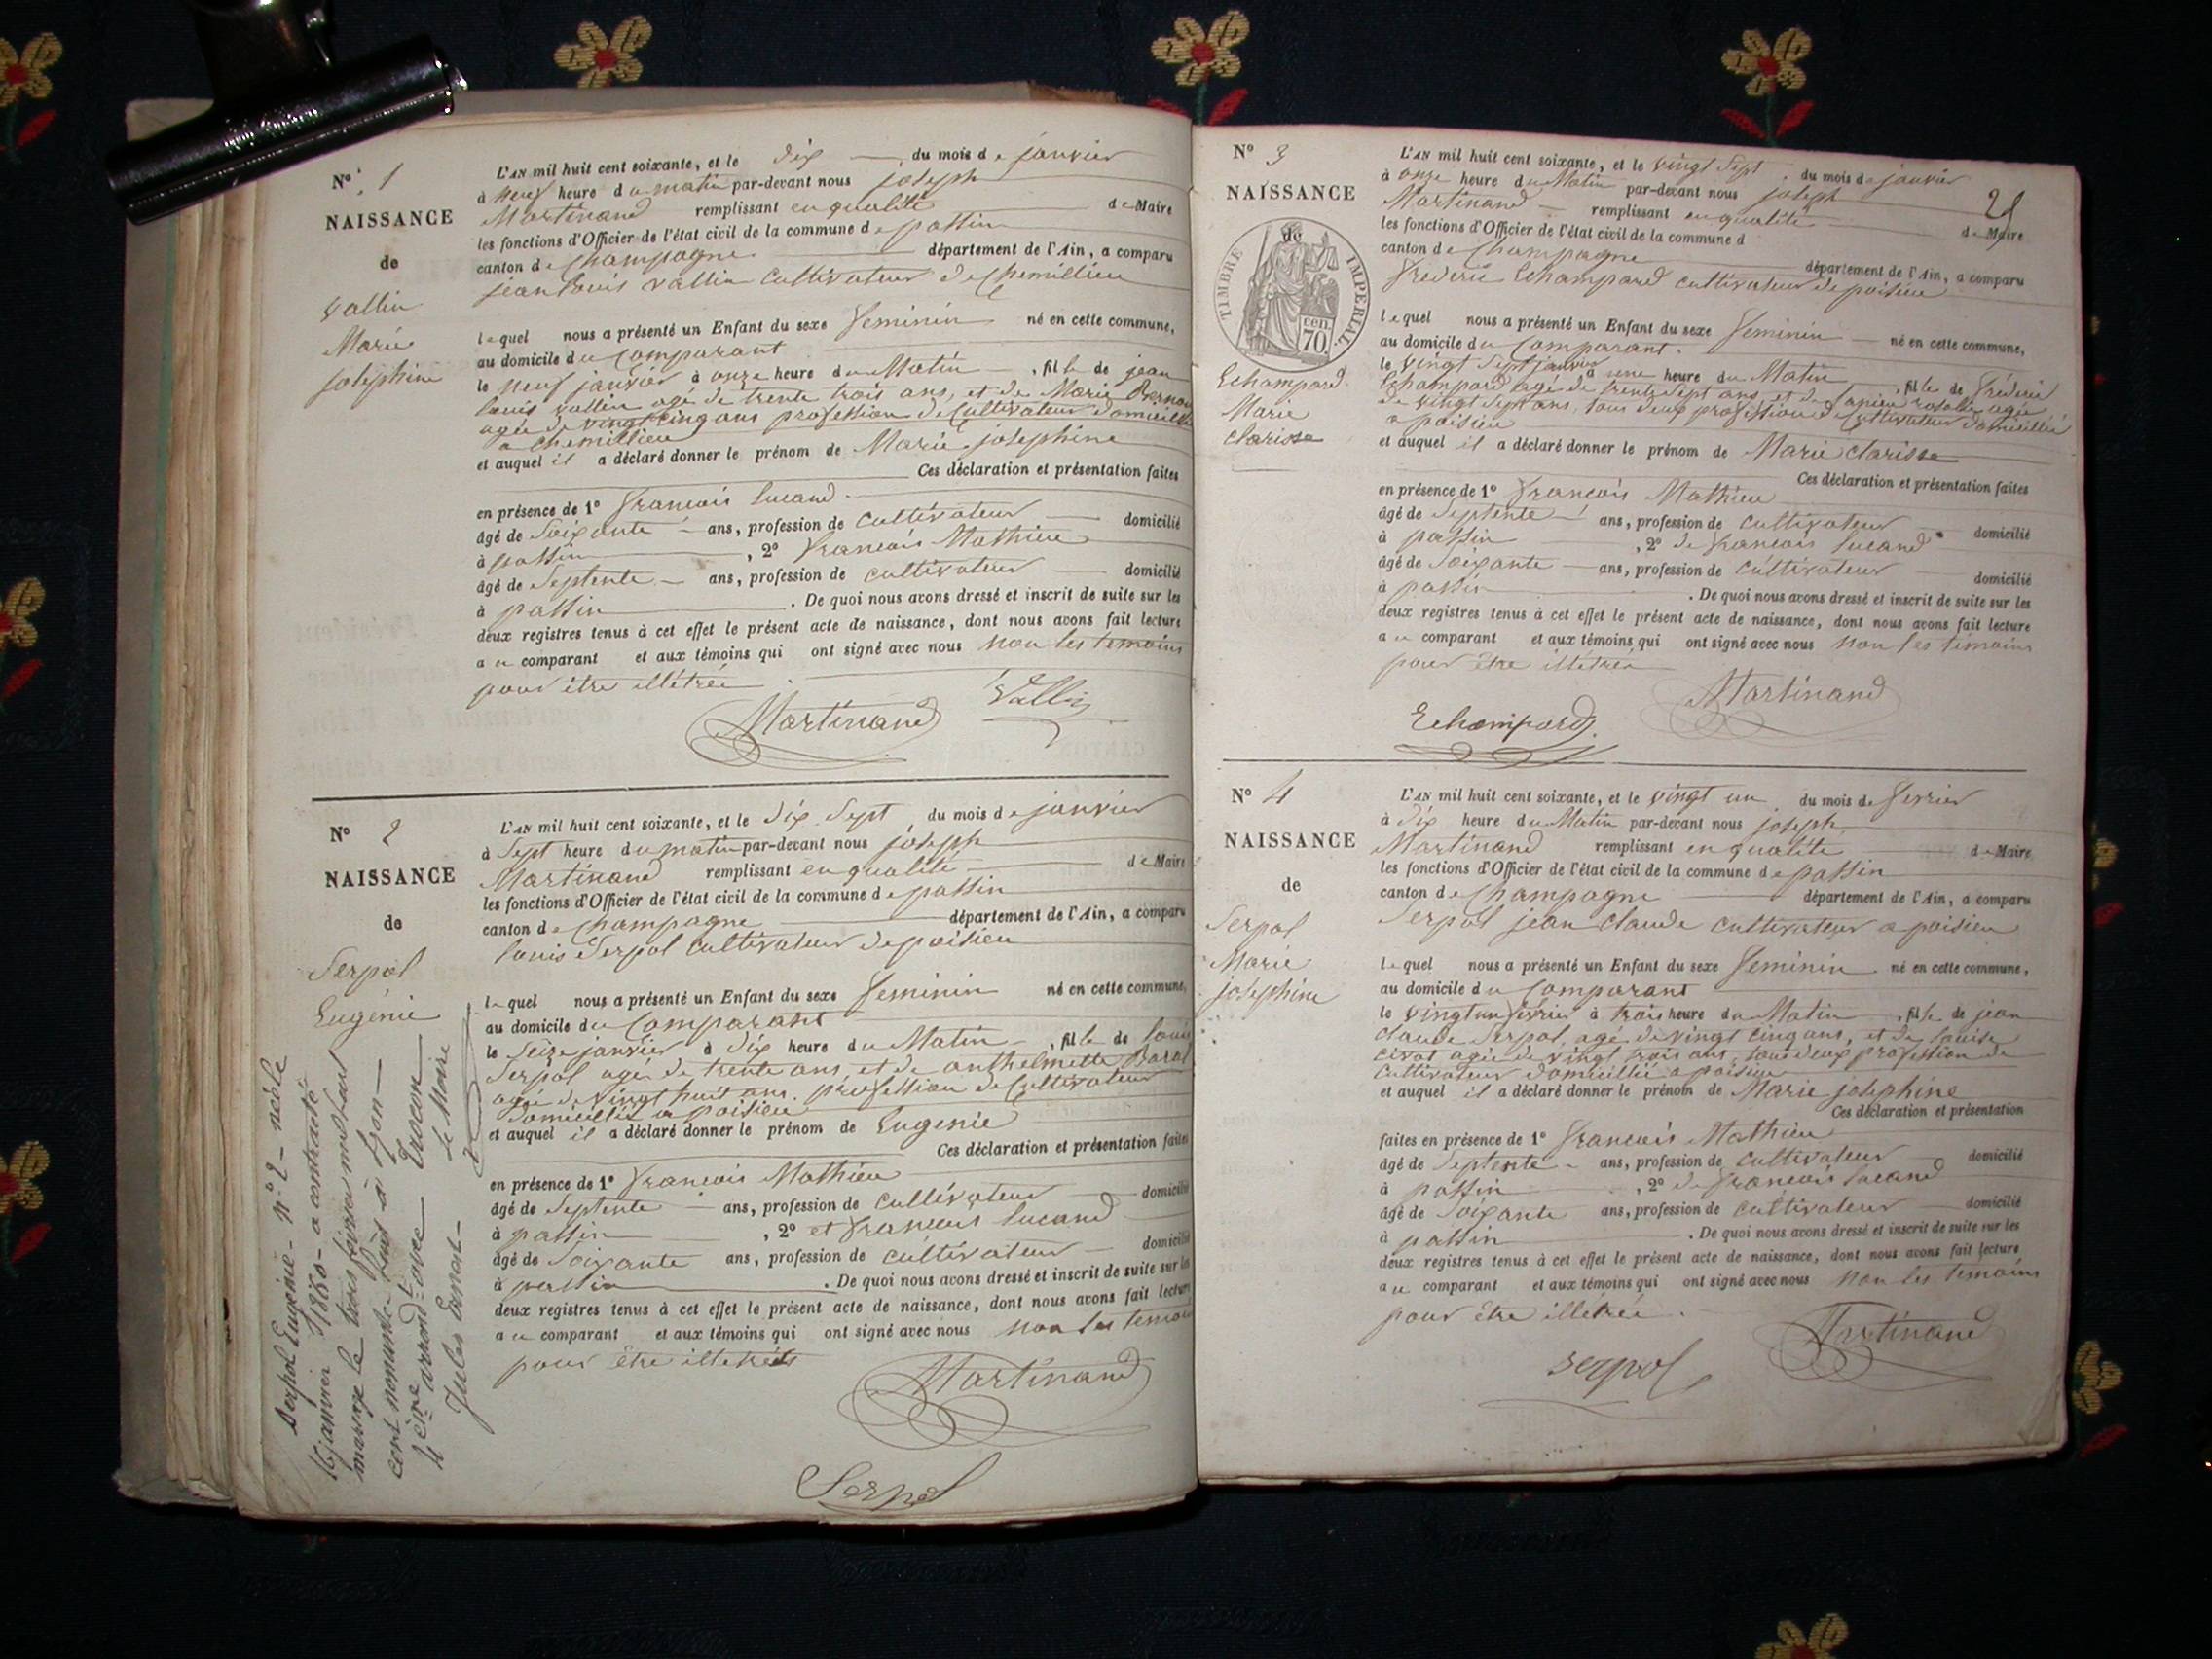 N° 1
NAISSANCE
de
Vallin
Marie
josephine
L'AN mil huit cent soixante, et le dix du mois de janvier
à neuf heure du matin par-devant nous joseph
Martinand remplissant en qualité de Maire
les fonctions d'Officier de l'état civil de la commune de passin
canton de Champagne département de l'Ain, a comparu
jean louis vallin cultivateur de chemillieu
lequel nous a présenté un Enfant du sexe feminin né en cette commune,
au domicile du Comparant
le neuf janvier à onze heure du Matin, fille de jean
louis vallin agé de trente trois ans, et de Marie
agée de vingt cinq ans profession de Cultivateur domicilié
a chemillieu
et auquel il a déclaré donner le prénom de Marie josephine
Ces déclaration et présentation faites
en présence de 1° francois lucand
âgé de Soixante ans, profession de cultivateur domicilié
à passin, 2° francois Mathieu
âgé de Septente ans, profession de cultivateur domicilié
à passin. De quoi nous avons dressé et inscrit de suite sur les
deux registres tenus à cet effet le présent acte de naissance, dont nous avons fait lecture
au comparant et aux témoins qui ont signé avec nous non les temoins
pour être illétrée
Martinand Vallin
N° 2
NAISSANCE
de
Serpol
Eugénie
L'AN mil huit cent soixante, et le dix Sept du mois de janvier
à Sept heure du matin par-devant nous joseph
Martinand remplissant en qualité de Maire
les fonctions d'Officier de l'état civil de la commune de passin
canton de Champagne département de l'Ain, a comparu
louis Serpol cultivateur de poisieu
lequel nous a présenté un Enfant du sexe feminin né en cette commune,
au domicile du Comparant
le Seize janvier à dix heure du Matin, fille de louis
Serpol agé de trente ans, et de anthelmette
agée de vingt huit ans. profession de Cultivateur
domiciliés a poisieu
et auquel il a déclaré donner le prénom de Eugenie
Ces déclaration et présentation faites
en présence de 1° francois Mathieu
âgé de Septente ans, profession de cultivateur domicilié
à passin, 2° et francois lucand
âgé de Soixante ans, profession de cultivateur domicilié
à passin. De quoi nous avons dressé et inscrit de suite sur les
deux registres tenus à cet effet le présent acte de naissance, dont nous avons fait lecture
au comparant et aux témoins qui ont signé avec nous non les temoins
pour être illetrés
Martinand
Serpol
Serpol Eugénie - n° 2 - née le
16 janvier 1860 - a contracté
mariage le trois février mil huit
cent nonante- à Lyon -
4eme arrond.t avec
Jules Ernest - le Maire
N° 3
NAISSANCE
de
TIMBRE IMPERIAL
70 cen.
Echampard
Marie
clarisse
L'AN mil huit cent soixante, et le vingt Sept du mois de janvier
à onze heure du Matin par-devant nous joseph
Martinand remplissant en qualité de Maire
les fonctions d'Officier de l'état civil de la commune d
canton de Champagne département de l'Ain, a comparu
frederic Echampard cultivateur de poisieu
lequel nous a présenté un Enfant du sexe feminin né en cette commune,
au domicile du Comparant.
le vingt Sept janvier à une heure du Matin, fille de frederic
Echampard agé de trente Sept ans et de rosalie agée
de vingt Sept ans, tous deux profession de Cultivateur domicilié
a poisieu
et auquel il a déclaré donner le prénom de Marie clarisse
Ces déclaration et présentation faites
en présence de 1° francois Mathieu
âgé de Septente ans, profession de cultivateur domicilié
à passin, 2° de francois lucand
âgé de Soixante ans, profession de cultivateur domicilié
à passin. De quoi nous avons dressé et inscrit de suite sur les
deux registres tenus à cet effet le présent acte de naissance, dont nous avons fait lecture
au comparant et aux témoins qui ont signé avec nous non les témoins
pour être illetrée
Martinand
Echampard
N° 4
NAISSANCE
de
Serpol
Marie
josephine
L'AN mil huit cent soixante, et le vingt un du mois de fevrier
à dix heure du Matin par-devant nous joseph
Martinand remplissant en qualité de Maire
les fonctions d'Officier de l'état civil de la commune de passin
canton de Champagne département de l'Ain, a comparu
Serpol jean claude cultivateur a poisieu
lequel nous a présenté un Enfant du sexe feminin né en cette commune,
au domicile du Comparant
le vingt un fevrier à trois heure du Matin, fille de jean
claude Serpol, agé de vingt cinq ans, et de louise
agée de vingt trois ans, tous deux profession de
Cultivateur domicillié a poisieu
et auquel il a déclaré donner le prénom de Marie josephine
Ces déclaration et présentation
faites en présence de 1° francois Mathieu
âgé de Septente ans, profession de cultivateur domicilié
à passin, 2° de francois lucand
âgé de Soixante ans, profession de cultivateur domicilié
à passin. De quoi nous avons dressé et inscrit de suite sur les
deux registres tenus à cet effet le présent acte de naissance, dont nous avons fait lecture
au comparant et aux témoins qui ont signé avec nous non les temoins
pour être illetrée.
Martinand
serpol